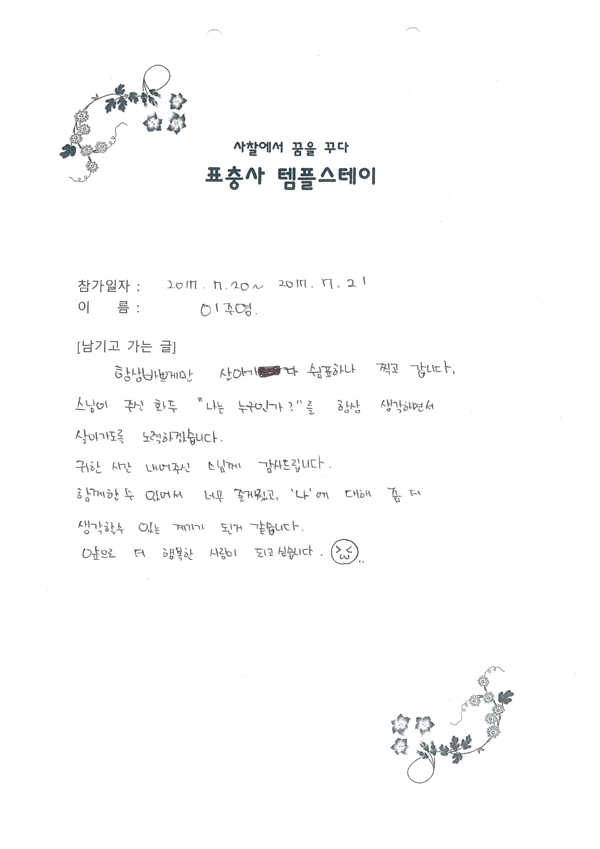 사찰에서 꿈을 꾸다
표충사 템플스테이
참가일자 : 2017. 7. 20 ~ 2017. 7. 21
이 름 : 이주영.
[남기고 가는 글]
항상바쁘게만 살아가다 쉼표하나 찍고 갑니다.
스님이 주신 화두 "나는 누구인가?"를 항상 생각하면서
살아가도록 노력하겠습니다.
귀한 시간 내어주신 스님께 감사드립니다.
함께한수 있어서 너무 즐거웠고, '나'에 대해 좀 더
생각할수 있는 계기가 된거 같습니다.
앞으로 더 행복한 사람이 되고싶습니다.